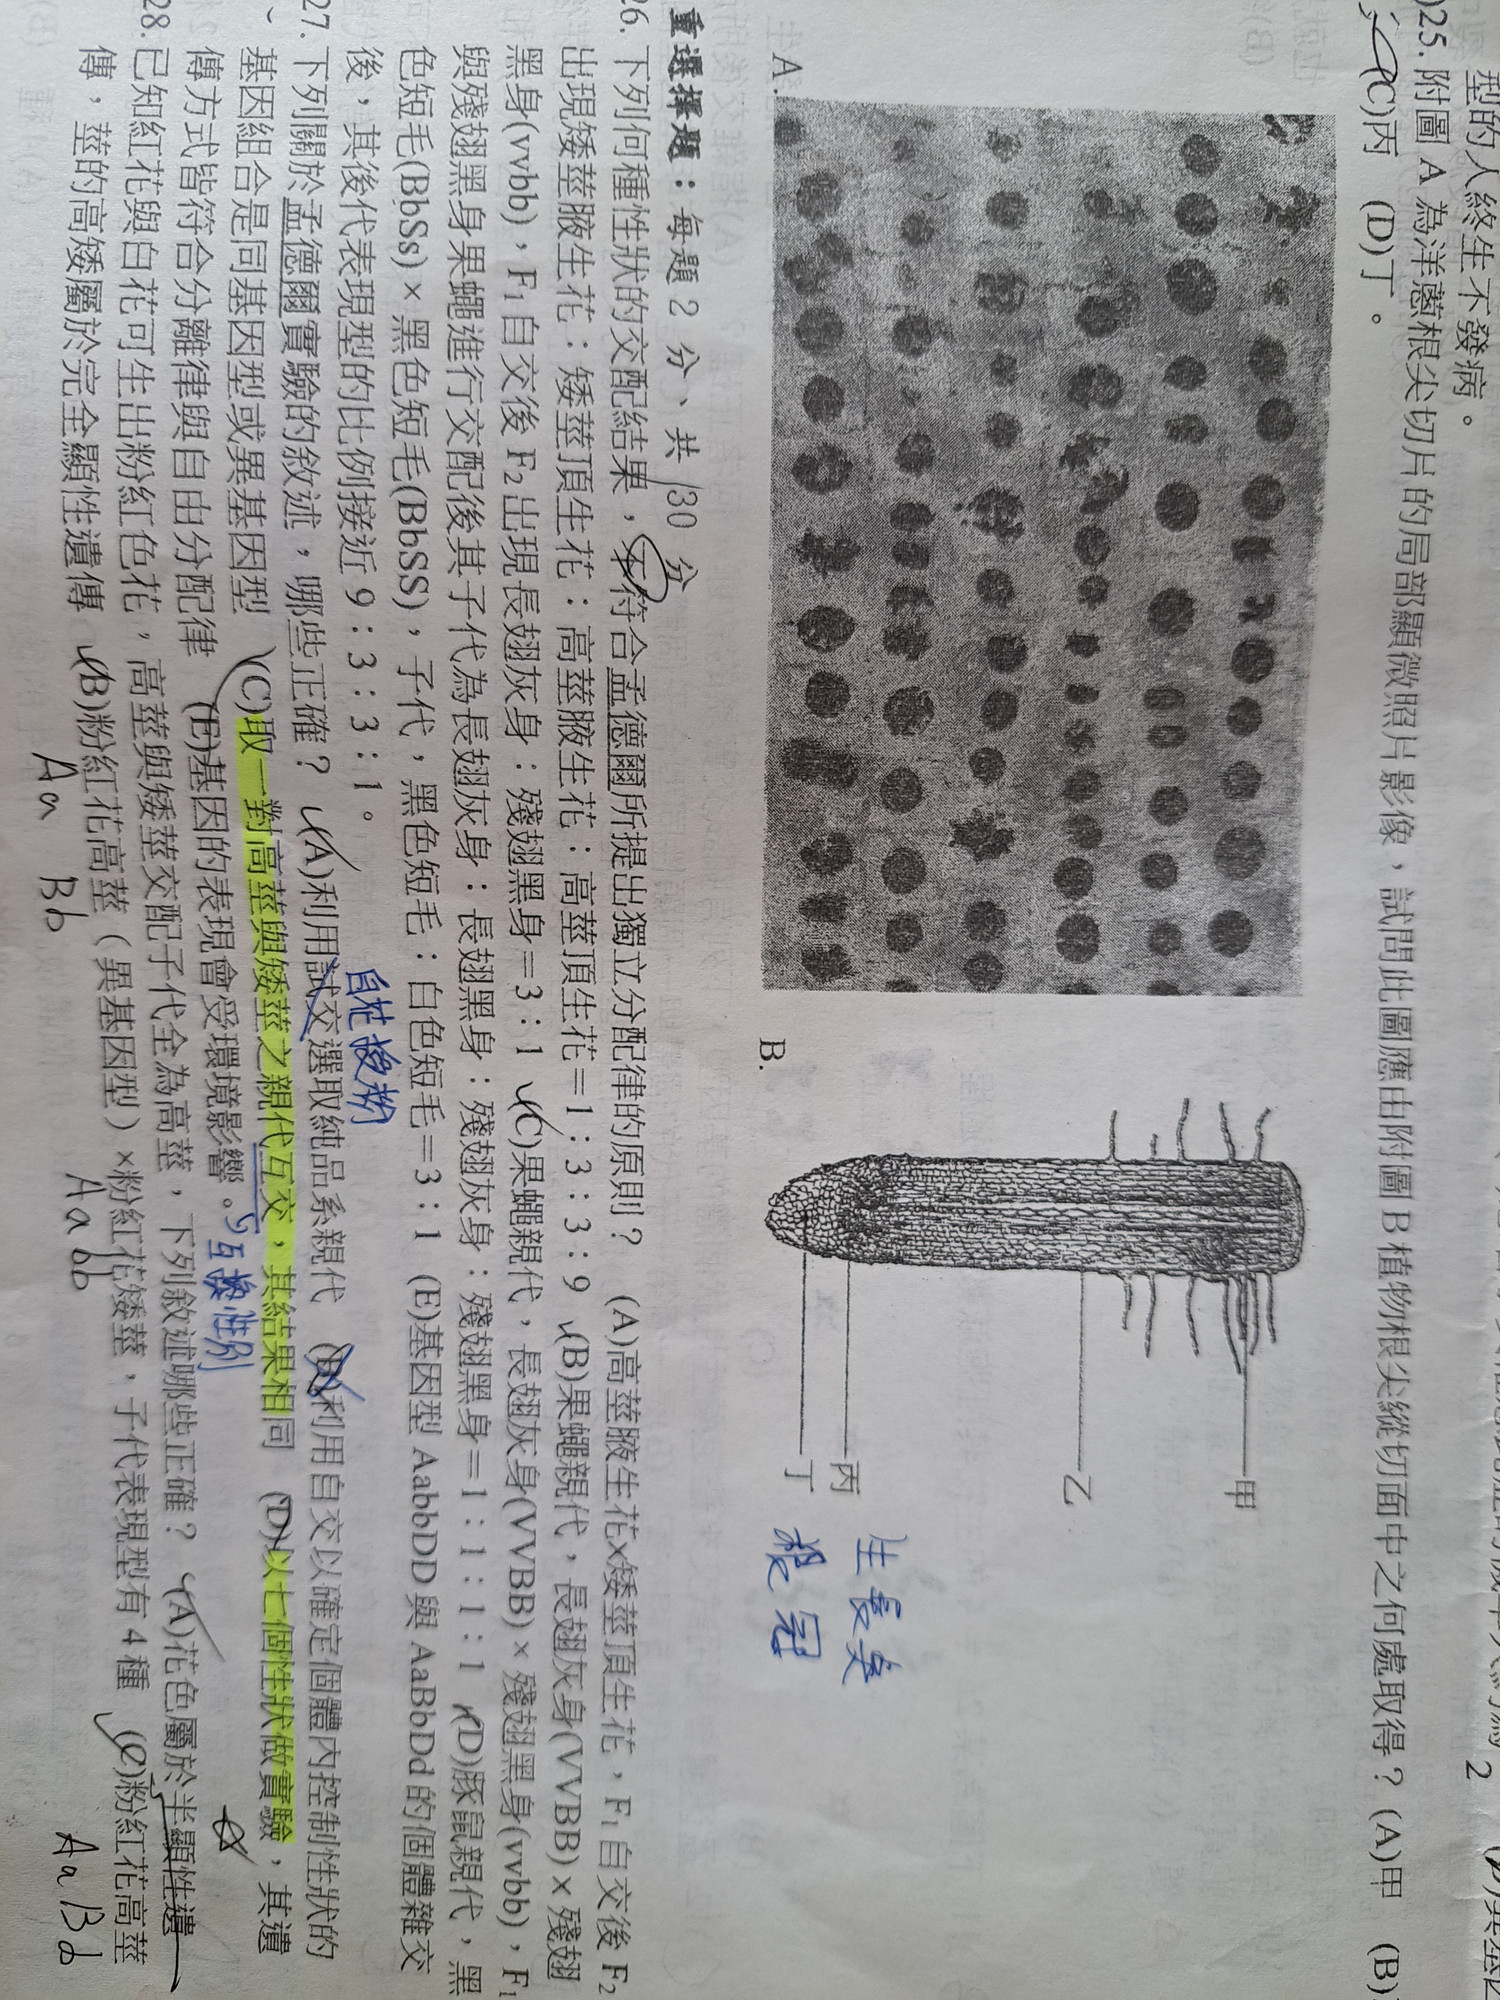 型的人終生不發病。
25. 附圖 A 為洋蔥根尖切片的局部顯微照片影像，試問此圖應由附圖 B 植物根尖縱切面中之何處取得？(A)甲 (B)
(C)丙 (D)丁。
A.
B.
甲
乙
丙
丁
生長點
根冠
重選擇題：每題 2 分、共 30 分
26. 下列何種性狀的交配結果，不符合孟德爾所提出獨立分配律的原則？ (A)高莖腋生花×矮莖頂生花，F1 自交後 F2
出現矮莖腋生花：矮莖頂生花：高莖腋生花：高莖頂生花＝1：3：3：9 (B)果蠅親代，長翅灰身(VVBB)×殘翅
黑身(vvbb)，F1 自交後 F2 出現長翅灰身：殘翅黑身＝3：1 (C)果蠅親代，長翅灰身(VVBB)×殘翅黑身(vvbb)，F1
與殘翅黑身果蠅進行交配後其子代為長翅灰身：長翅黑身：殘翅灰身：殘翅黑身＝1：1：1：1 (D)豚鼠親代，黑
色短毛(BbSs)×黑色短毛(BbSS)，子代，黑色短毛：白色短毛＝3：1 (E)基因型 AabbDD 與 AaBbDd 的個體雜交
後，其後代表現型的比例接近 9：3：3：1。
自花授粉
27. 下列關於孟德爾實驗的敘述，哪些正確？ (A)利用試交選取純品系親代 (B)利用自交以確定個體內控制性狀的
基因組合是同基因型或異基因型 (C)取一對高莖與矮莖之親代互交，其結果相同 (D)以七個性狀做實驗，其遺
傳方式皆符合分離律與自由分配律 (E)基因的表現會受環境影響。
互換性別
28. 已知紅花與白花可生出粉紅色花，高莖與矮莖交配子代全為高莖，下列敘述哪些正確？ (A)花色屬於半顯性遺
傳，莖的高矮屬於完全顯性遺傳 (B)粉紅花高莖（異基因型）×粉紅花矮莖，子代表現型有 4 種 (C)粉紅花高莖
Aa Bb Aabb AaBb